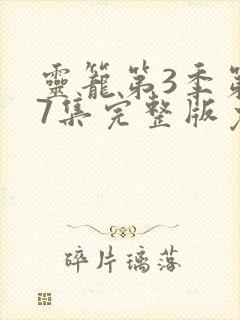 靈籠第3季第
7集完整版
碎片璃落